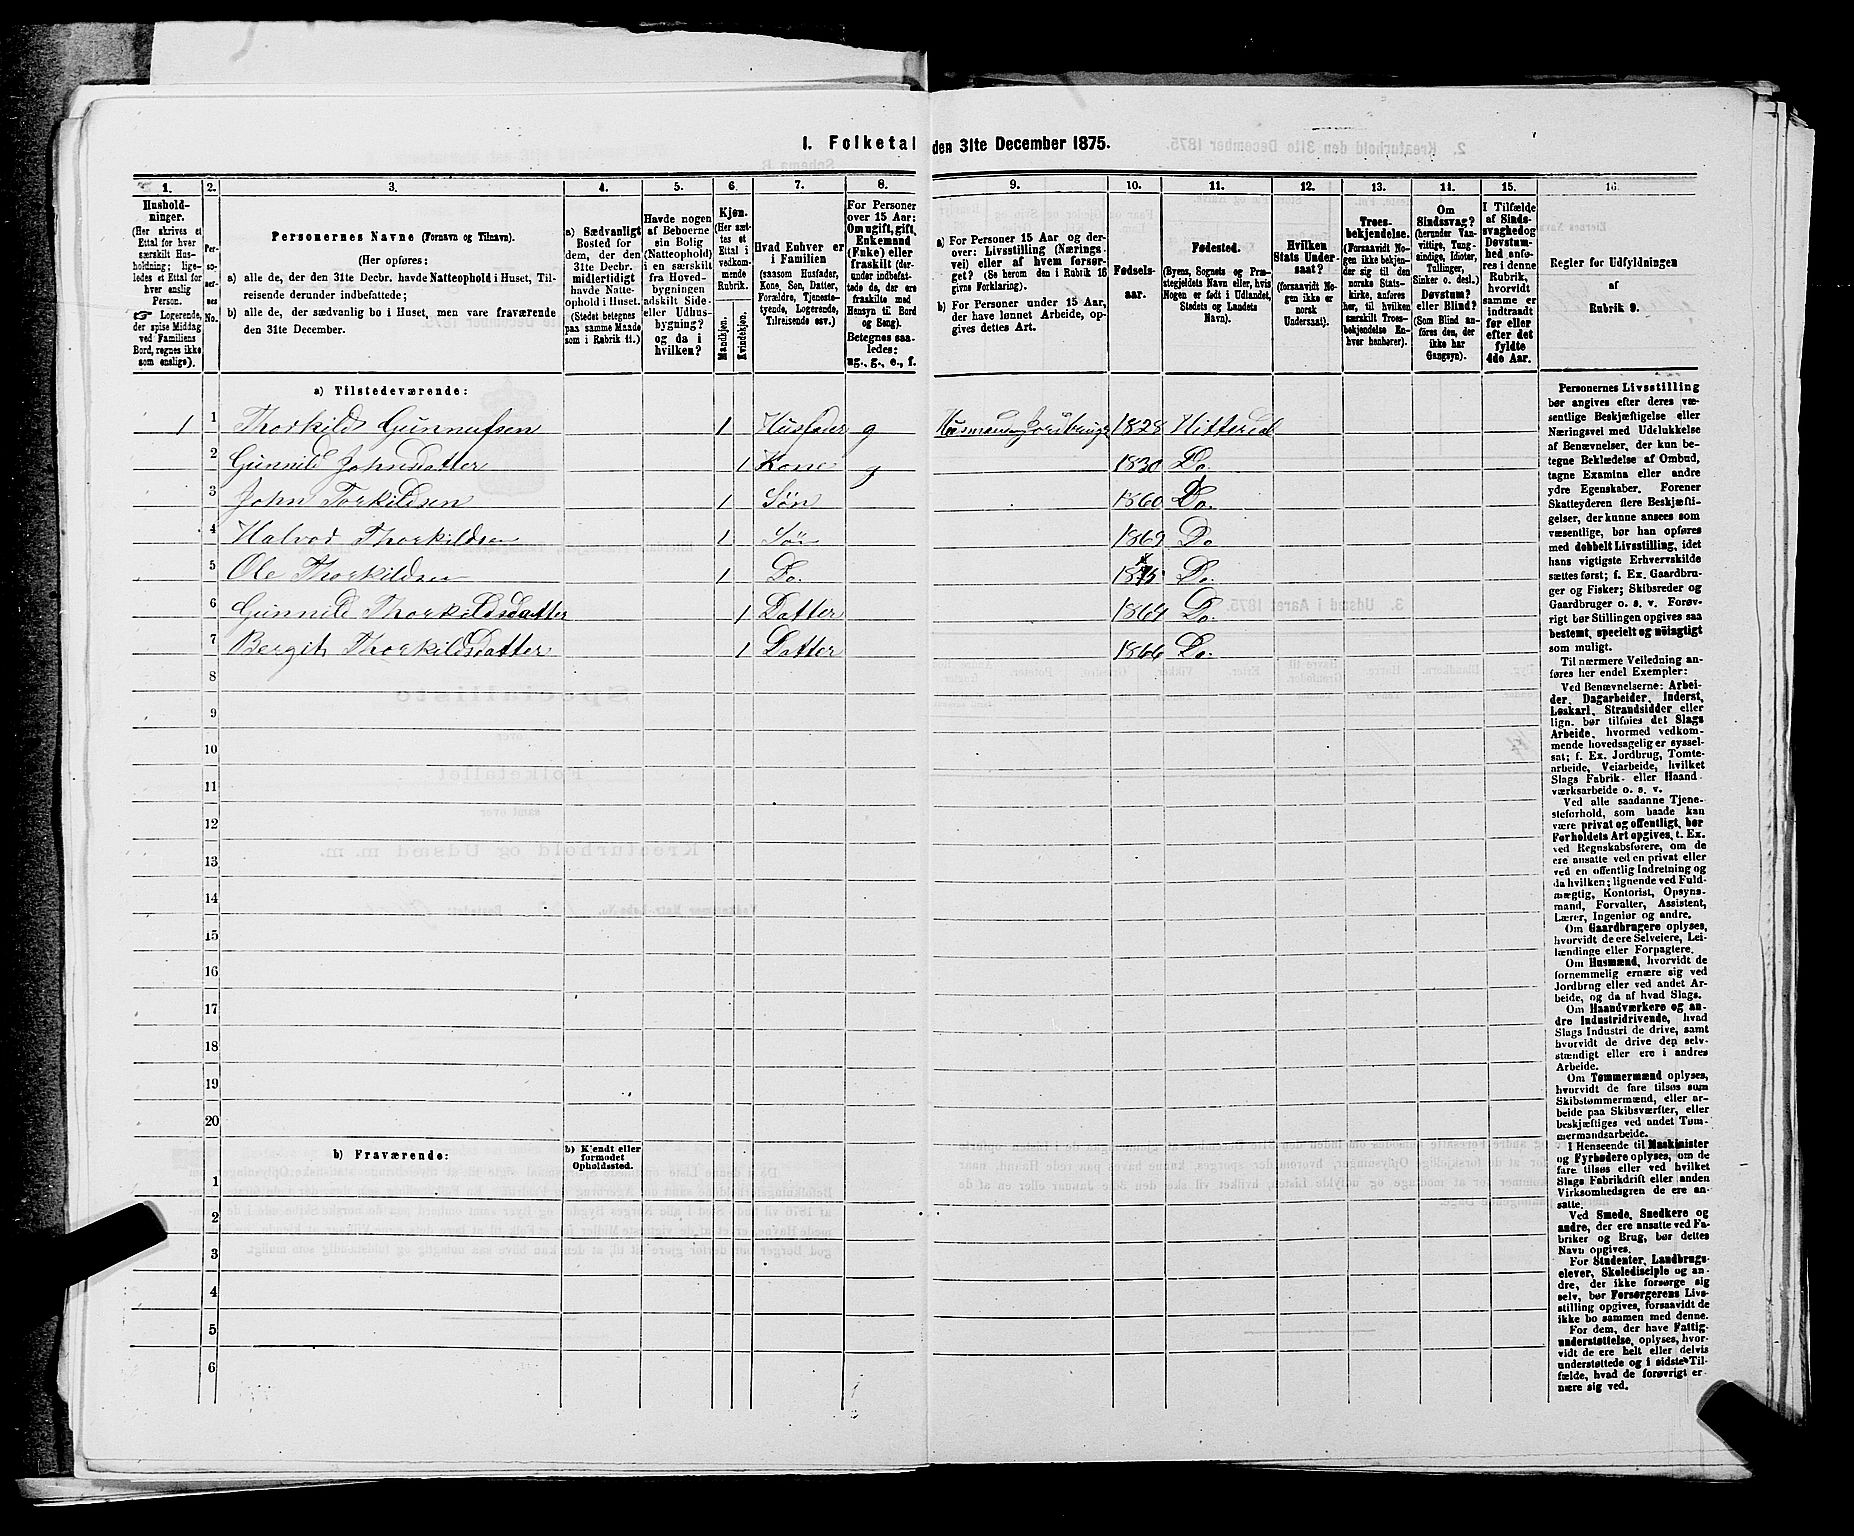 1. Folketal den 31te December 1875.
1. 2. 3. 4. 5. 6. 7. 8. 9. 10. 11. 12. 13. 14. 15. 16.
Hushold-
ninger.
(Her skrives et
Ettal for hver
særskilt Hus-
holdning; lige-
ledes et Ettal for
hver enslig
Person.
☞ Logerende,
der spise Middag
ved Familiens
Bord, regnes ikke
som enslige).
Per-
so-
ner-
nes
No.
Personernes Navne (Fornavn og Tilnavn).
(Her opføres:
a) alle de, der den 31te Decbr. havde Natteophold i Huset, Til-
reisende derunder indbefattede;
b) alle de, der sædvanlig bo i Huset, men vare fraværende
den 31te December.
a) Sædvanligt
Bosted for
dem, der den
31te Decbr.
midlertidigt
havde Natte-
ophold i Huset.
(Stedet betegnes
paa samme Maade
som i Rubrik 11.)
Havde nogen
af Beboerne
sin Bolig
(Natteophold)
i en særskilt
fra Hoved-
bygningen
adskilt Side-
eller Udhus-
bygning?
og da i
hvilken?
Kjøn.
(Her sæt-
tes et
Ettal i
vedkom-
mende
Rubrik.
Mandkjøn.
Kvindekjøn.
Hvad Enhver er
i Familien
(saasom Husfader,
Kone, Søn, Datter,
Forældre, Tjeneste-
tyende, Logerende,
Tilreisende osv.)
For Personer
over 15 Aar:
Om ugift, gift,
Enkemand
(Enke) eller
fraskilt (der-
under indbefat-
tede de, der ere
fraskilte med
Hensyn til Bord
og Seng).
Betegnes saa-
ledes:
ug., g., e., f.
a) For Personer 15 Aar og der-
over: Livsstilling (Nærings-
vei) eller af hvem forsør-
get? (Se herom den i Rubrik 16
givne Forklaring).
b) For Personer under 15 Aar,
der have lønnet Arbeide, op-
gives dettes Art.
Fødsels-
aar.
Fødested.
(Byens, Sognets og Præ-
stegjeldets Navn eller, hvis
Nogen er født i Udlandet,
Stedets og Landets
Navn).
Hvilken
Stats Under-
saat?
(forsaavidt No-
gen ikke er
norsk
Undersaat).
Troes-
bekjendelse.
(Forsaavidt No-
gen ikke bekjen-
der sig til den
norske Stats-
kirke, anføres
her, til hvilken
særskilt Troes-
bekjendelse En-
hver henhører).
Om
Sindssvag?
(herunder Van-
vittige, Tung-
sindige, Idioter,
Tullinger,
Sinker o. desl.)
Døvstum?
eller Blind?
(Som Blind an-
føres den, der
ikke har
Gangsyn).
I Tilfælde
af Sinds-
svaghed og
Døvstum-
hed anfø-
res i denne
Rubrik,
hvorvidt
samme er
indtraadt
før eller
efter det
fyldte
4de Aar.
Regler for Udfyldningen
af
Rubrik 9.
a) Tilstedeværende:
1 1 Thorkild Gunnufsen 1 Husfader g Husmand Jordbruger 1828 Hitterdal
2 Gunnild Johnsdatter 1 Kone g 1830 Do.
3 John Torkildsen 1 Søn 1860 Do.
4 Halvor Thorkildsen 1 Søn 1869 Do
5 Ole Thorkildsen 1 Do. 1875 Do.
6 Gunnild Thorkildsdatter 1 Datter 1864 Do.
7 Bergit Thorkildsdatter 1 Datter 1866 Do.
8
9
10
11
12
13
14
15
16
17
18
19
20
b) Fraværende:
b) Kjendt eller
formodet
Opholdssted.
1
2
3
4
5
6
Personernes Livsstilling
bør angives efter deres væ-
sentlige Beskjæftigelse eller
Næringsvei med Udelukkelse
af Benævnelser, der kun be-
tegne Beklædelse af Ombud,
tagne Examina eller andre
ydre Egenskaber. Forener
Skatteyderen flere Beskjæfti-
gelser, der kunne ansees som
væsentlige, bør han opføres
med dobbelt Livsstilling, idet
hans vigtigste Erhvervskilde
sættes først; f. Ex. Gaardbru-
ger og Fisker; Skibsreder og
Gaardbruger o. s. v. Forøv-
rigt bør Stillingen opgives saa
bestemt, specielt og nöiagtigt
som muligt.
Til nærmere Veiledning an-
føres her endel Exempler:
Ved Benævnelserne: Arbei-
der, Dagarbeider, Inderst,
Løskarl, Strandsidder eller
lign. bør tilføies det Slags
Arbeide, hvormed vedkom-
mende hovedsagelig er syssel-
sat; f. Ex. Jordbrug, Tomte-
arbeide, Veiarbeide, hvilket
Slags Fabrik- eller Haand
værksarbeide o. s. v.
Ved alle saadanne Tjene-
steforhold, som baade kan
være privat og offentligt, bør
Forholdets Art opgives, t. Ex.
ved Regnskabsførere, om de
ere ansatte ved en privat eller
ved en offentlig Indretning og
da hvilken; lignende ved Fuld-
mægtig, Kontorist, Opsyns-
mand, Forvalter, Assistent,
Lærer, Ingeniør og andre.
Om Gaardbrugere oplyses,
hvorvidt de ere Selveiere, Lei-
lændinge eller Forpagtere.
Om Husmænd, hvorvidt de
fornemmelig ernære sig ved
Jordbrug eller ved andet Ar-
beide, og da af hvad Slags.
Om Haandværkere og an-
dre Industridrivende, hvad
Slags Industri de drive, samt
hvorvidt de drive den selv-
stændigt eller ere i andres
Arbeide.
Om Tømmermænd oplyses,
hvorvidt de fare tilsøs som
Skibstømmermænd, eller ar-
beide paa Skibsværfter, eller
beskjæftiges ved andet Tøm-
mermandsarbeide.
I Henseende til Maskinister
og Fyrbødere oplyses, om de
fare tilsøs eller ved hvilket
Slags Fabrikdrift eller anden
Virksomhedsgren de ere an-
satte.
Ved Smede, Snedkere og
andre, der ere ansatte ved Fa-
briker og Brug, bør dettes
Navn opgives.
For Studenter, Landbrugs-
elever, Skoledisciple og an-
dre, der ikke forsørge sig
selv, bør Forsørgerens Livs-
stilling opgives, forsaavidt de
ikke bo sammen med denne.
For dem, der have Fattig-
understøttelse, oplyses, hvor-
vidt de ere helt eller delvis
understøttede og i sidste Til-
fælde, hvad de forøvrigt er-
nære sig ved.